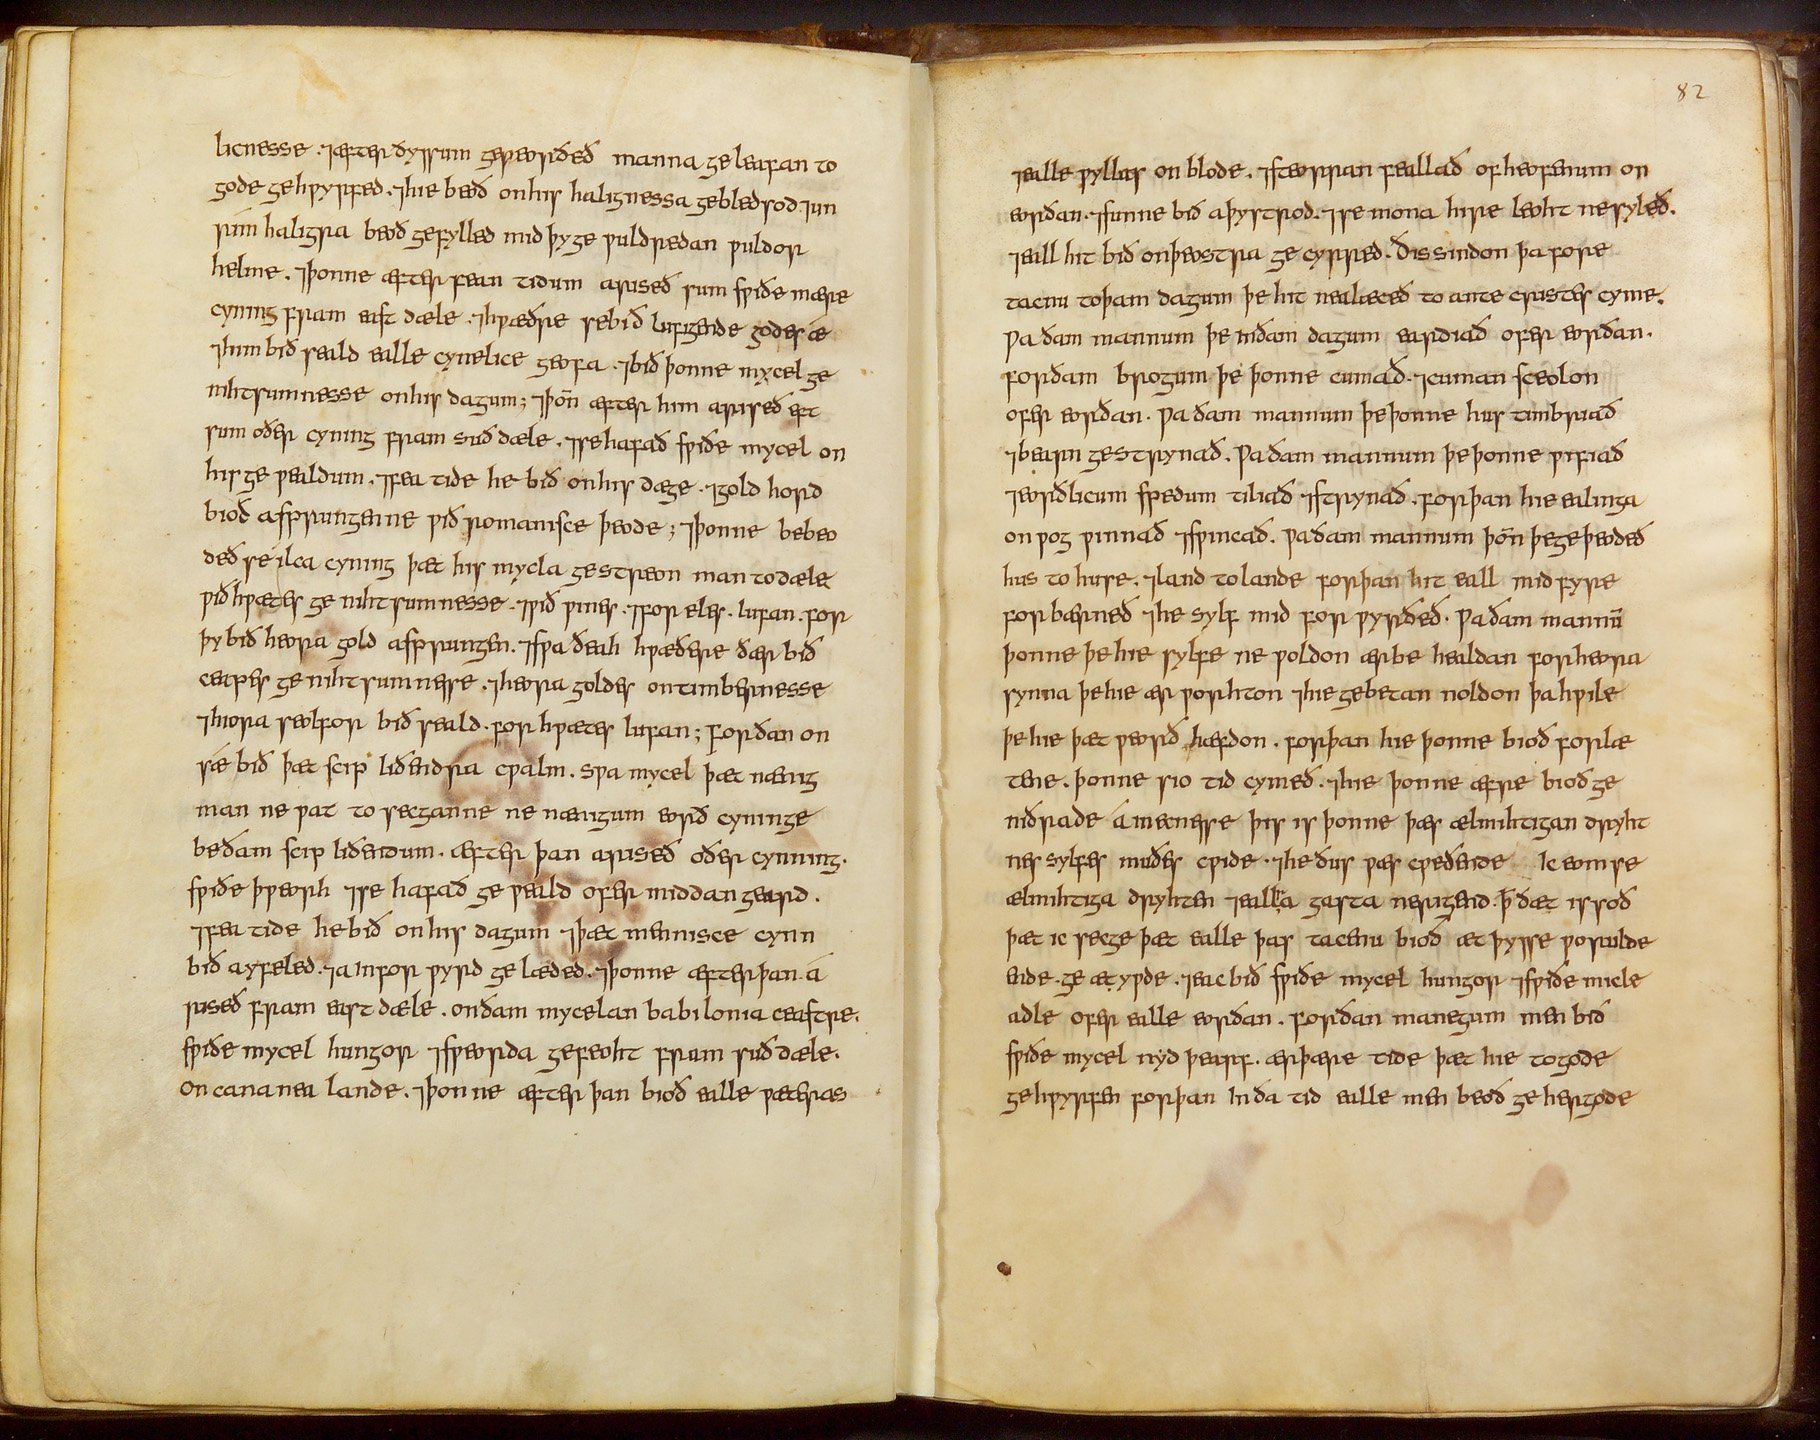 licnesse · ⁊æfter ðyssum geƿeorðeð manna geleafan to
gode gehƿyrfed · ⁊hie beoð onhis halignessa gebledsod ⁊un
rim haligra beoð gefylled mid þy ge ƿuldredan ƿuldor
helme · ⁊þonne æfter fean tidum ariseð sum sƿiðe mære
cyning fram east dæle · ⁊hƿæðre se bið lufigende godes ǽ
⁊him bið seald ealle cynelice geofa · ⁊bið þonne mycel ge
nihtsumnesse onhis dagum; ⁊þon̄ æfter him ariseð eft
sum oðer cyning fram suð dæle · ⁊se hafað sƿiðe mycel on
his ge ƿealdum · ⁊fea tide he bið onhis dæge · ⁊gold hord
bioð asprungenne ƿið romanisce þeode; ⁊þonne bebeo
deð se ilca cyning þæt his mycla gestreon man todæle
ƿið hƿætes ge nihtsumnesse · ⁊ƿið ƿines · ⁊for eles · lufan · for
þy bið heora gold asprungen · ⁊sƿa ðeah hƿæðere ðær bið
ceapes genihtsumnesse · ⁊heora goldes ontimbernesse
⁊hiora seolfor bið seald · for hƿætes lufan; Forðan on
sǽ bið þæt scip liðendra cƿalm · sƿa mycel þæt nænig
man ne ƿat to secganne ne nænigum eorð cyninge
beðam scip liðendum · æfter þan ariseð oðer cynning ·
sƿiðe þƿeorh ⁊se hafað geƿeald ofer middangeard ·
⁊fea tide hebið onhis dagum ⁊þæt mennisce cynn
bið ayfeled · ⁊a infor ƿyrd gelæded · ⁊þonne æfterþan · á
riseð fram east dæle · onðam mycelan babilonia ceastre ·
sƿiðe mycel hungor ⁊sƿeorda gefeoht fram suð dæle ·
on cananea lande · ⁊þonne æfter þan bioð ealle ƿæteras
82
⁊ealle ƿyllas on blode · ⁊steorran feallað ofheofenum on
eorðan · ⁊sunne bið aþystrod · ⁊se mona hire leoht ne syleð ·
⁊eall hit bið onþeostra ge cyrred · Ðis sindon þa fore
tacnu toþam dagum þe hit nealæceð to ante cristes cyme ·
Ƿa ðam mannum þe inðam dagum eardiað ofer eorðan ·
forðam brogum þe þonne cumað · ⁊cuman sceolon
ofer eorðan · Ƿa ðam mannum þeþonne hus timbriað
⁊bearn gestrynað · Ƿa ðam mannum þeþonne ƿifiað
⁊eorðlicum spedum tiliað ⁊strynað · forþan hie ealinga
on ƿog ƿinnað ⁊sƿincað · Ƿa ðam mannum þon̄ þe geþeodeð
hus to huse · ⁊land to lande forþan hit eall mid fyre
for bærneð ⁊he sylf mid for ƿyrðeð · Ƿa ðam mannū
þonne þe hie sylfe ne ƿoldon ær be healdan forheora
synna þe hie ær ƿorhton ⁊hie gebetan noldon þa hƿile
þe hie þæt ƿeorð hæfdon · forþan hie þonne bioð forlæ
tene · þonne sio tid cymeð · ⁊hie þonne æfre bioð ge
niðrade á inecnesse þis is þonne þæs ælmihtigan dryht
nes sylfes muðes cƿide · ⁊he ðus ƿæs cƿeðende Ic eom se
ælmihtiga dryhten ⁊ealra gasta nerigend · ꝥ ðæt is soð
þæt ic secge þæt ealle þas tacenu bioð æt þysse ƿorulde
ende · ge æt yƿde · ⁊eac bið sƿiðe mycel hungor ⁊sƿiðe micle
adle ofer ealle eorðan · forðan manegum men bið
sƿiðe mycel nyd þearf · ærþære tide þæt hie togode
gehƿyrfen forþan in ða tid ealle men beoð ge hergode